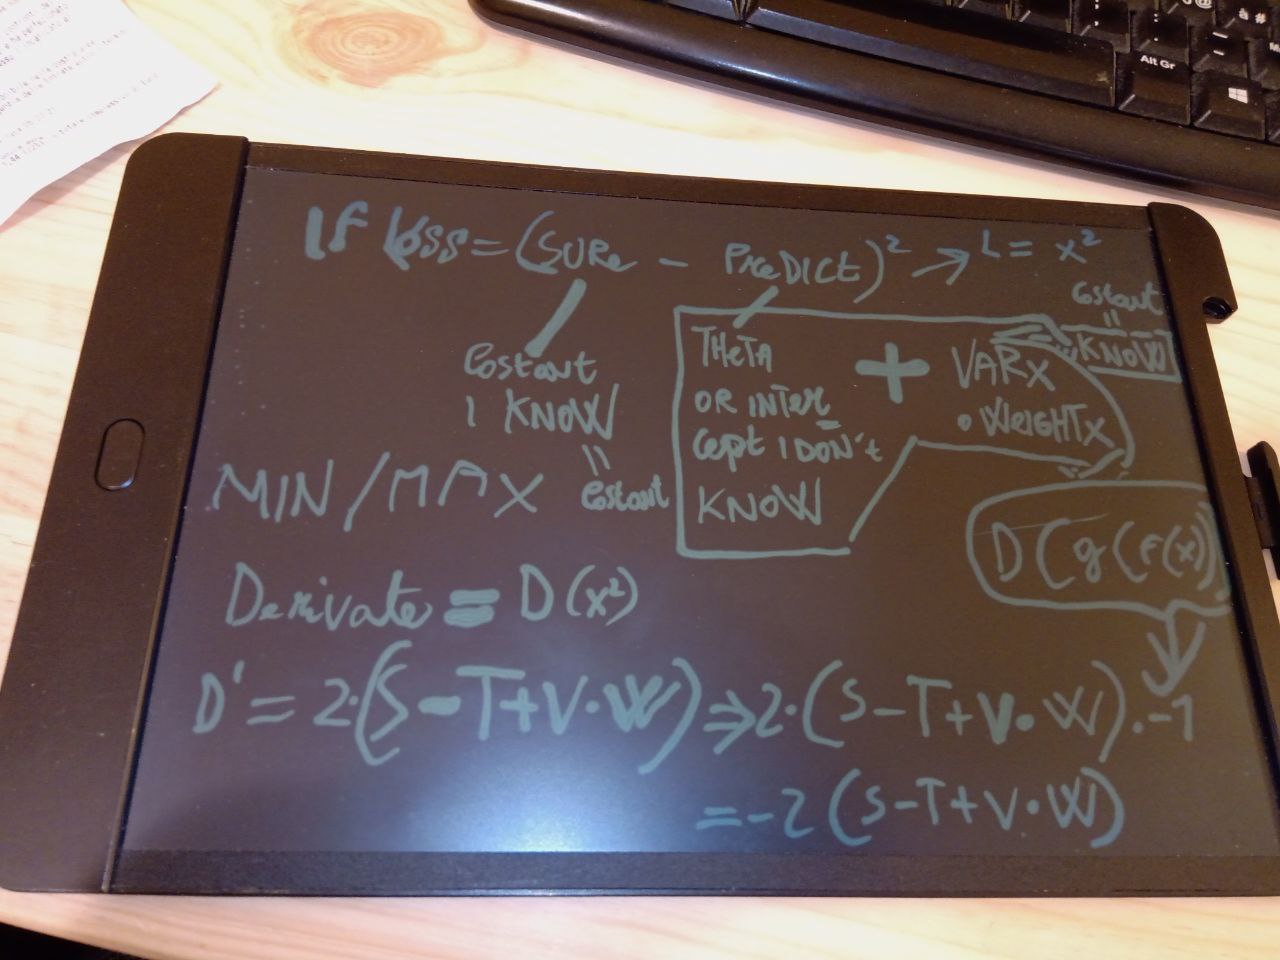 IF loss = (SURe - PreDICt)² → L = x²
Costant
Costant
I KNOW
=
Costant
THeTA
OR INTER
cept I DON't
KNOW
+
VARx
• WeiGHTx
KNOW
=
Costant
MIN/MAX
D(g(f(x))
Derivate = D(x²)
D' = 2·(S-T+V·W) ⇒ 2·(S-T+V·W)·-1
= -2(S-T+V·W)
Alt Gr